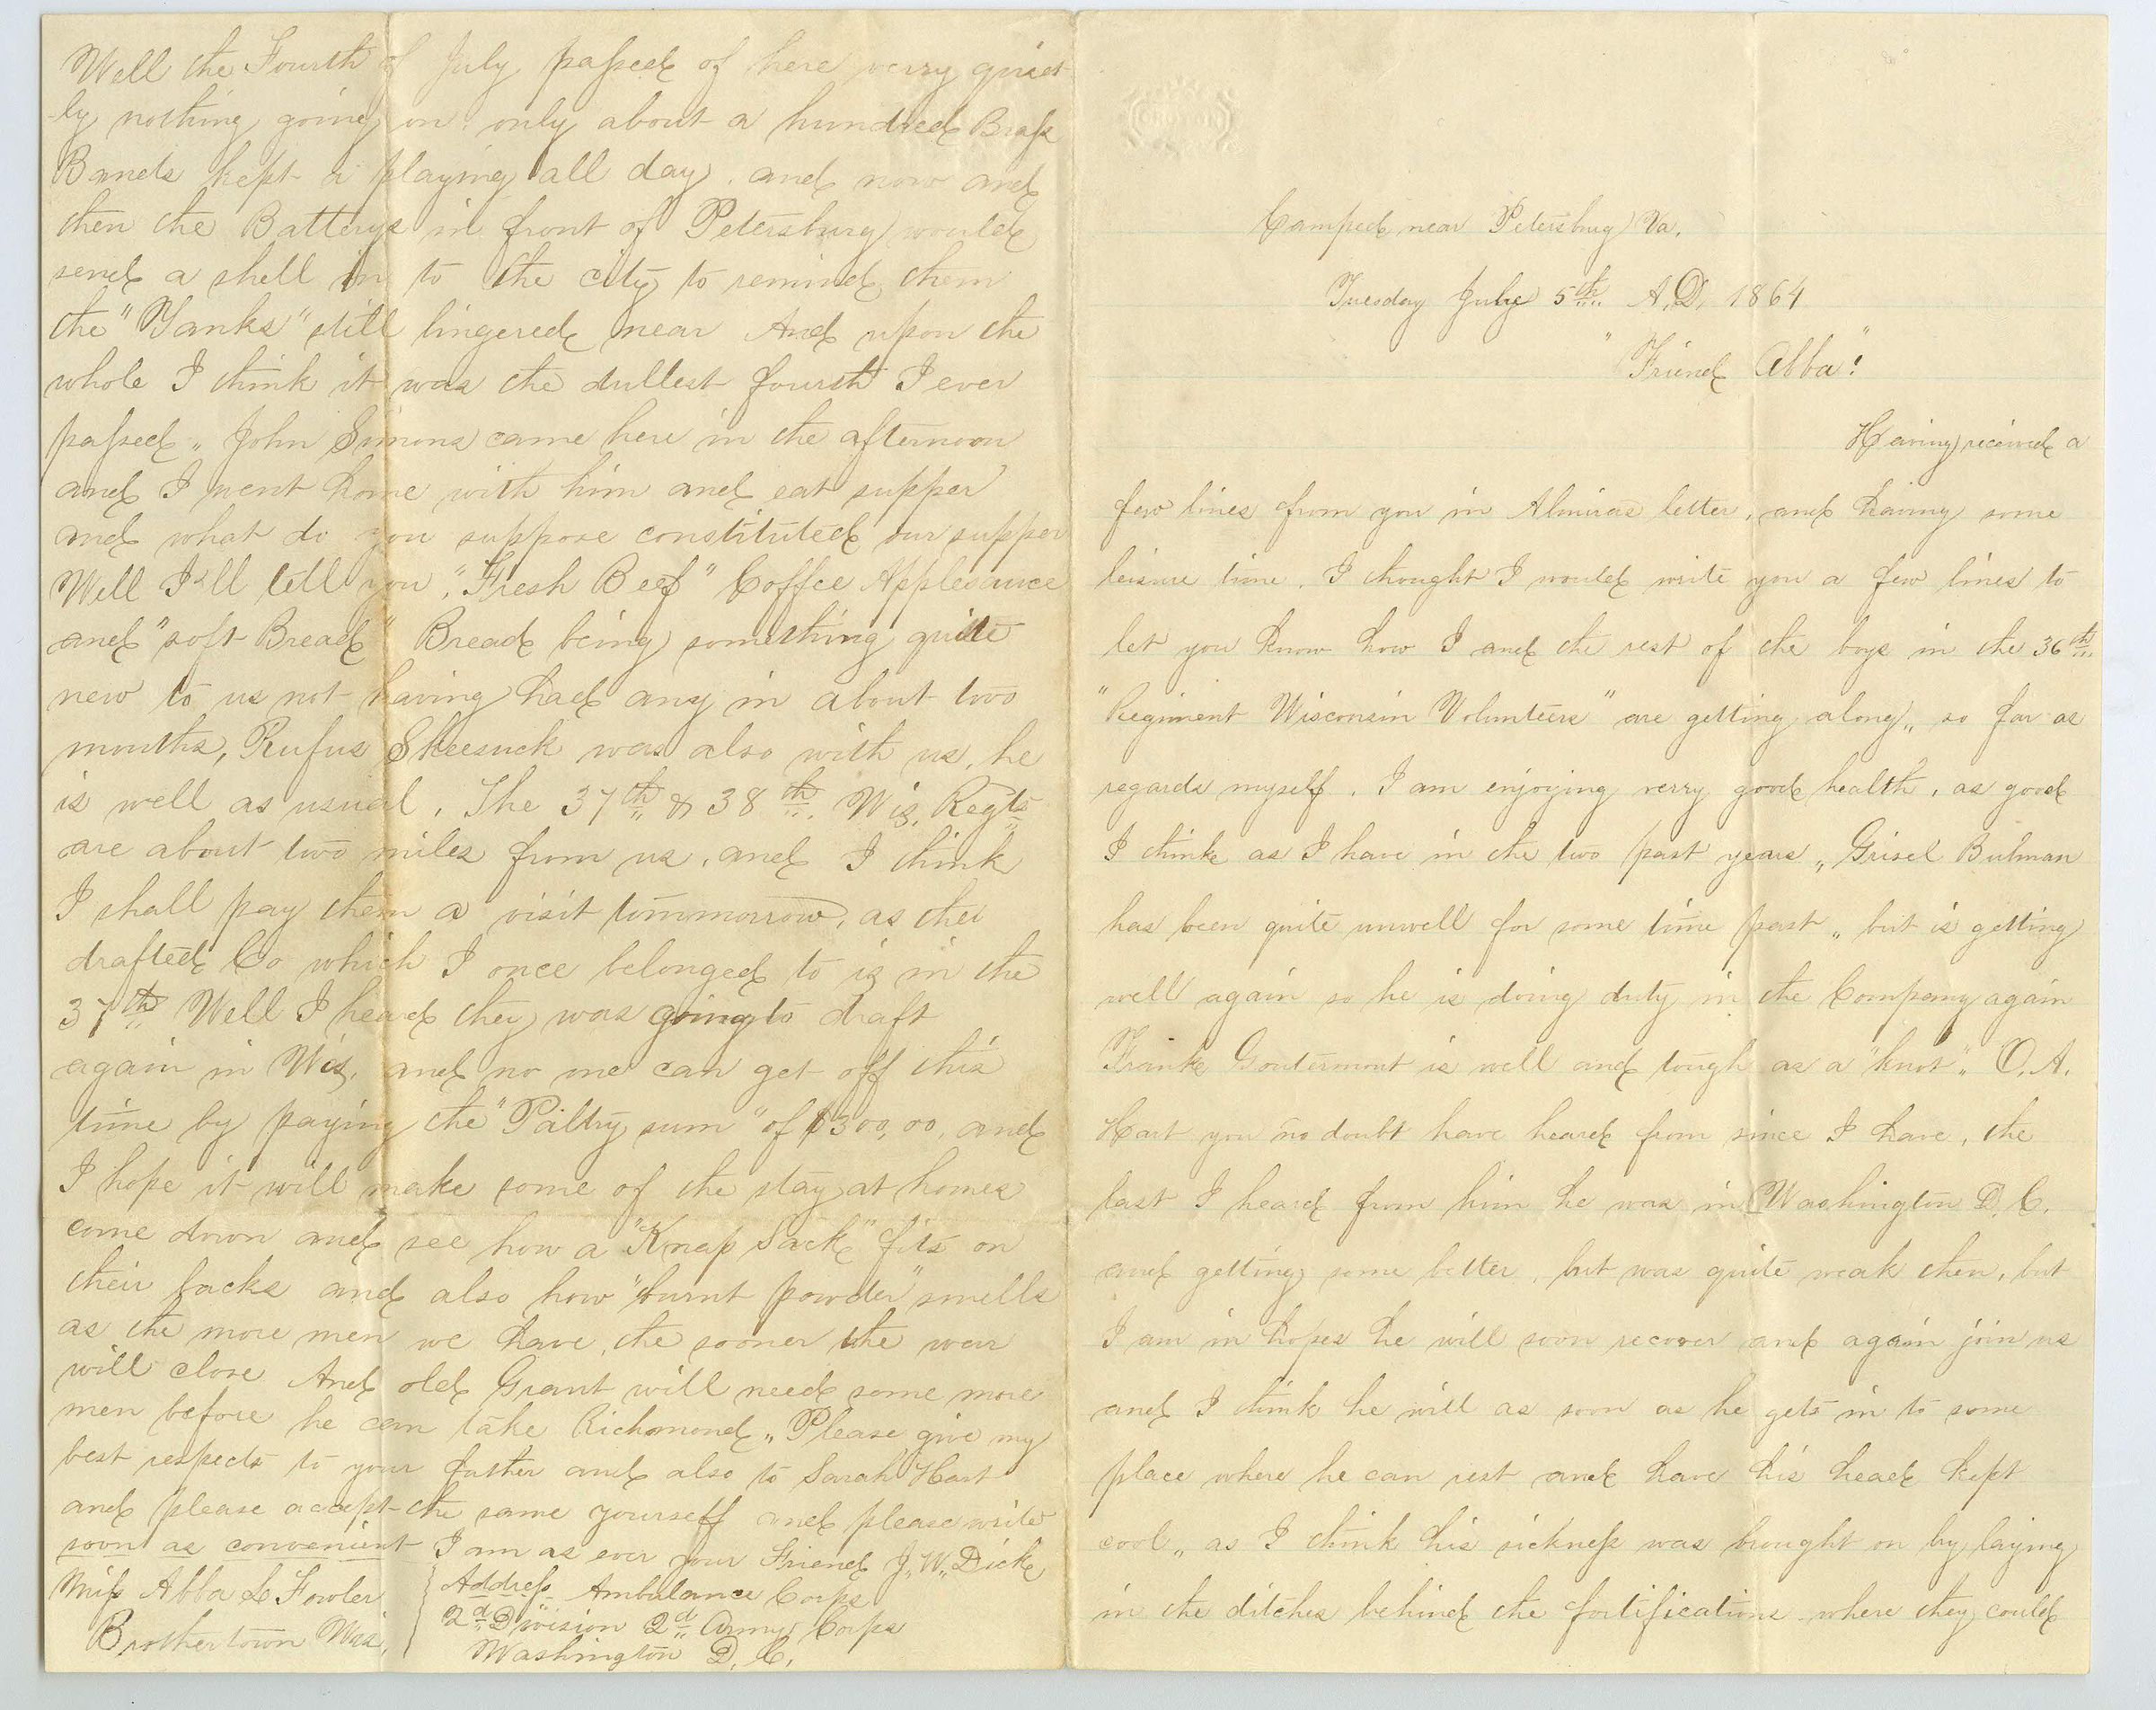 Camped near Petersburg Va.
Tuesday July 5th A.D. 1864
"Friend Abba"!
Having received a
few lines from you in Almiras letter, and having some
leisure time. I thought I would write you a few lines to
let you know how I and the rest of the boys in the 36th
"Regiment Wisconsin Volunteers" are getting along,, so far as
regards myself. I am enjoying verry good health, as good
I think as I have in the two past years,, Grisel Bulman
has been quite unwell for some time past,, but is getting
well again so he is doing duty in the Company again
Frank Goutermout is well and tough as a "knot",, O.A.
Hart you no doubt have heard from since I have, the
last I heard from him he was in Washington D.C.
and getting some better, but was quite weak then, but
I am in hopes he will soon recover and again join us
and I think he will as soon as he gets in to some
place where he can rest and have his head kept
cool,, as I think his sickness was brought on by laying
in the ditches behind the fortifications where they could
Well the Fourth of July passed of here verry quiet-
-ly nothing going on. only about a hundred Brass
Bands kept a playing all day. and now and
then the Batterys in front of Petersburg would
send a shell in to the city to remind them
the "Yanks" still lingered near And upon the
whole I think it was the dullest fourth I ever
passed,, John Simons came here in the afternoon
and I went home with him and eat supper
and what do you suppose constituted our supper
Well I'll tell you, "Fresh Beef" Coffee Applesauce
and "soft Bread" Bread being something quite
new to us not having had any in about two
months, Rufus Skeesuck was also with us, he
is well as usual, The 37th & 38th Wis. Regts
are about two miles from us, and I think
I shall pay them a visit tommorrow, as the
drafted Co which I once belonged to is in the
37th Well I heard they was going to draft
again in Wis, and no one can get off this
time by paying the "Paltry sum" of $300,00, and
I hope it will make some of the stay at homes
come down and see how a "Knap Sack" fits on
their backs and also how "burnt powder" smells
as the more men we have, the sooner the war
will close And old Grant will need some more
men before he can take Richmond,, Please give my
best respects to your father and also to Sarah Hart
and please accept the same yourself and please write
soon as convenient I am as ever your Friend J,,W,,Dick
Miss Abba L Fowler
Brothertown Wis,
Address- Ambulance Corps
2d Division 2d Army Corps
Washington D.C.